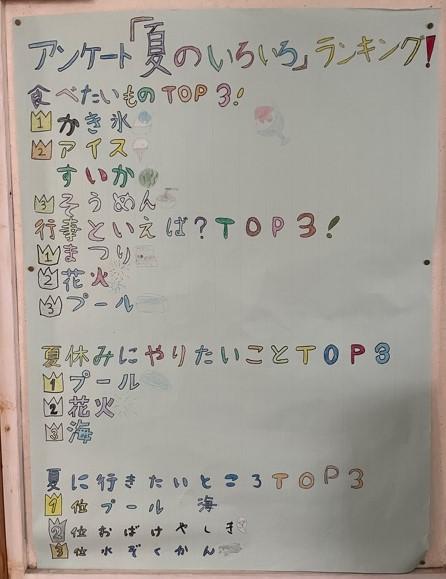 アンケート「夏のいろいろ」ランキング!
食べたいものTOP3!
1 かき氷
2 アイス
すいか
3 そうめん
行事といえば?TOP3!
1 まつり
2 花火
3 プール
夏休みにやりたいことTOP3
1 プール
2 花火
3 海
夏に行きたいところTOP3
1位 プール 海
2位 おばけやしき
3位 水ぞくかん